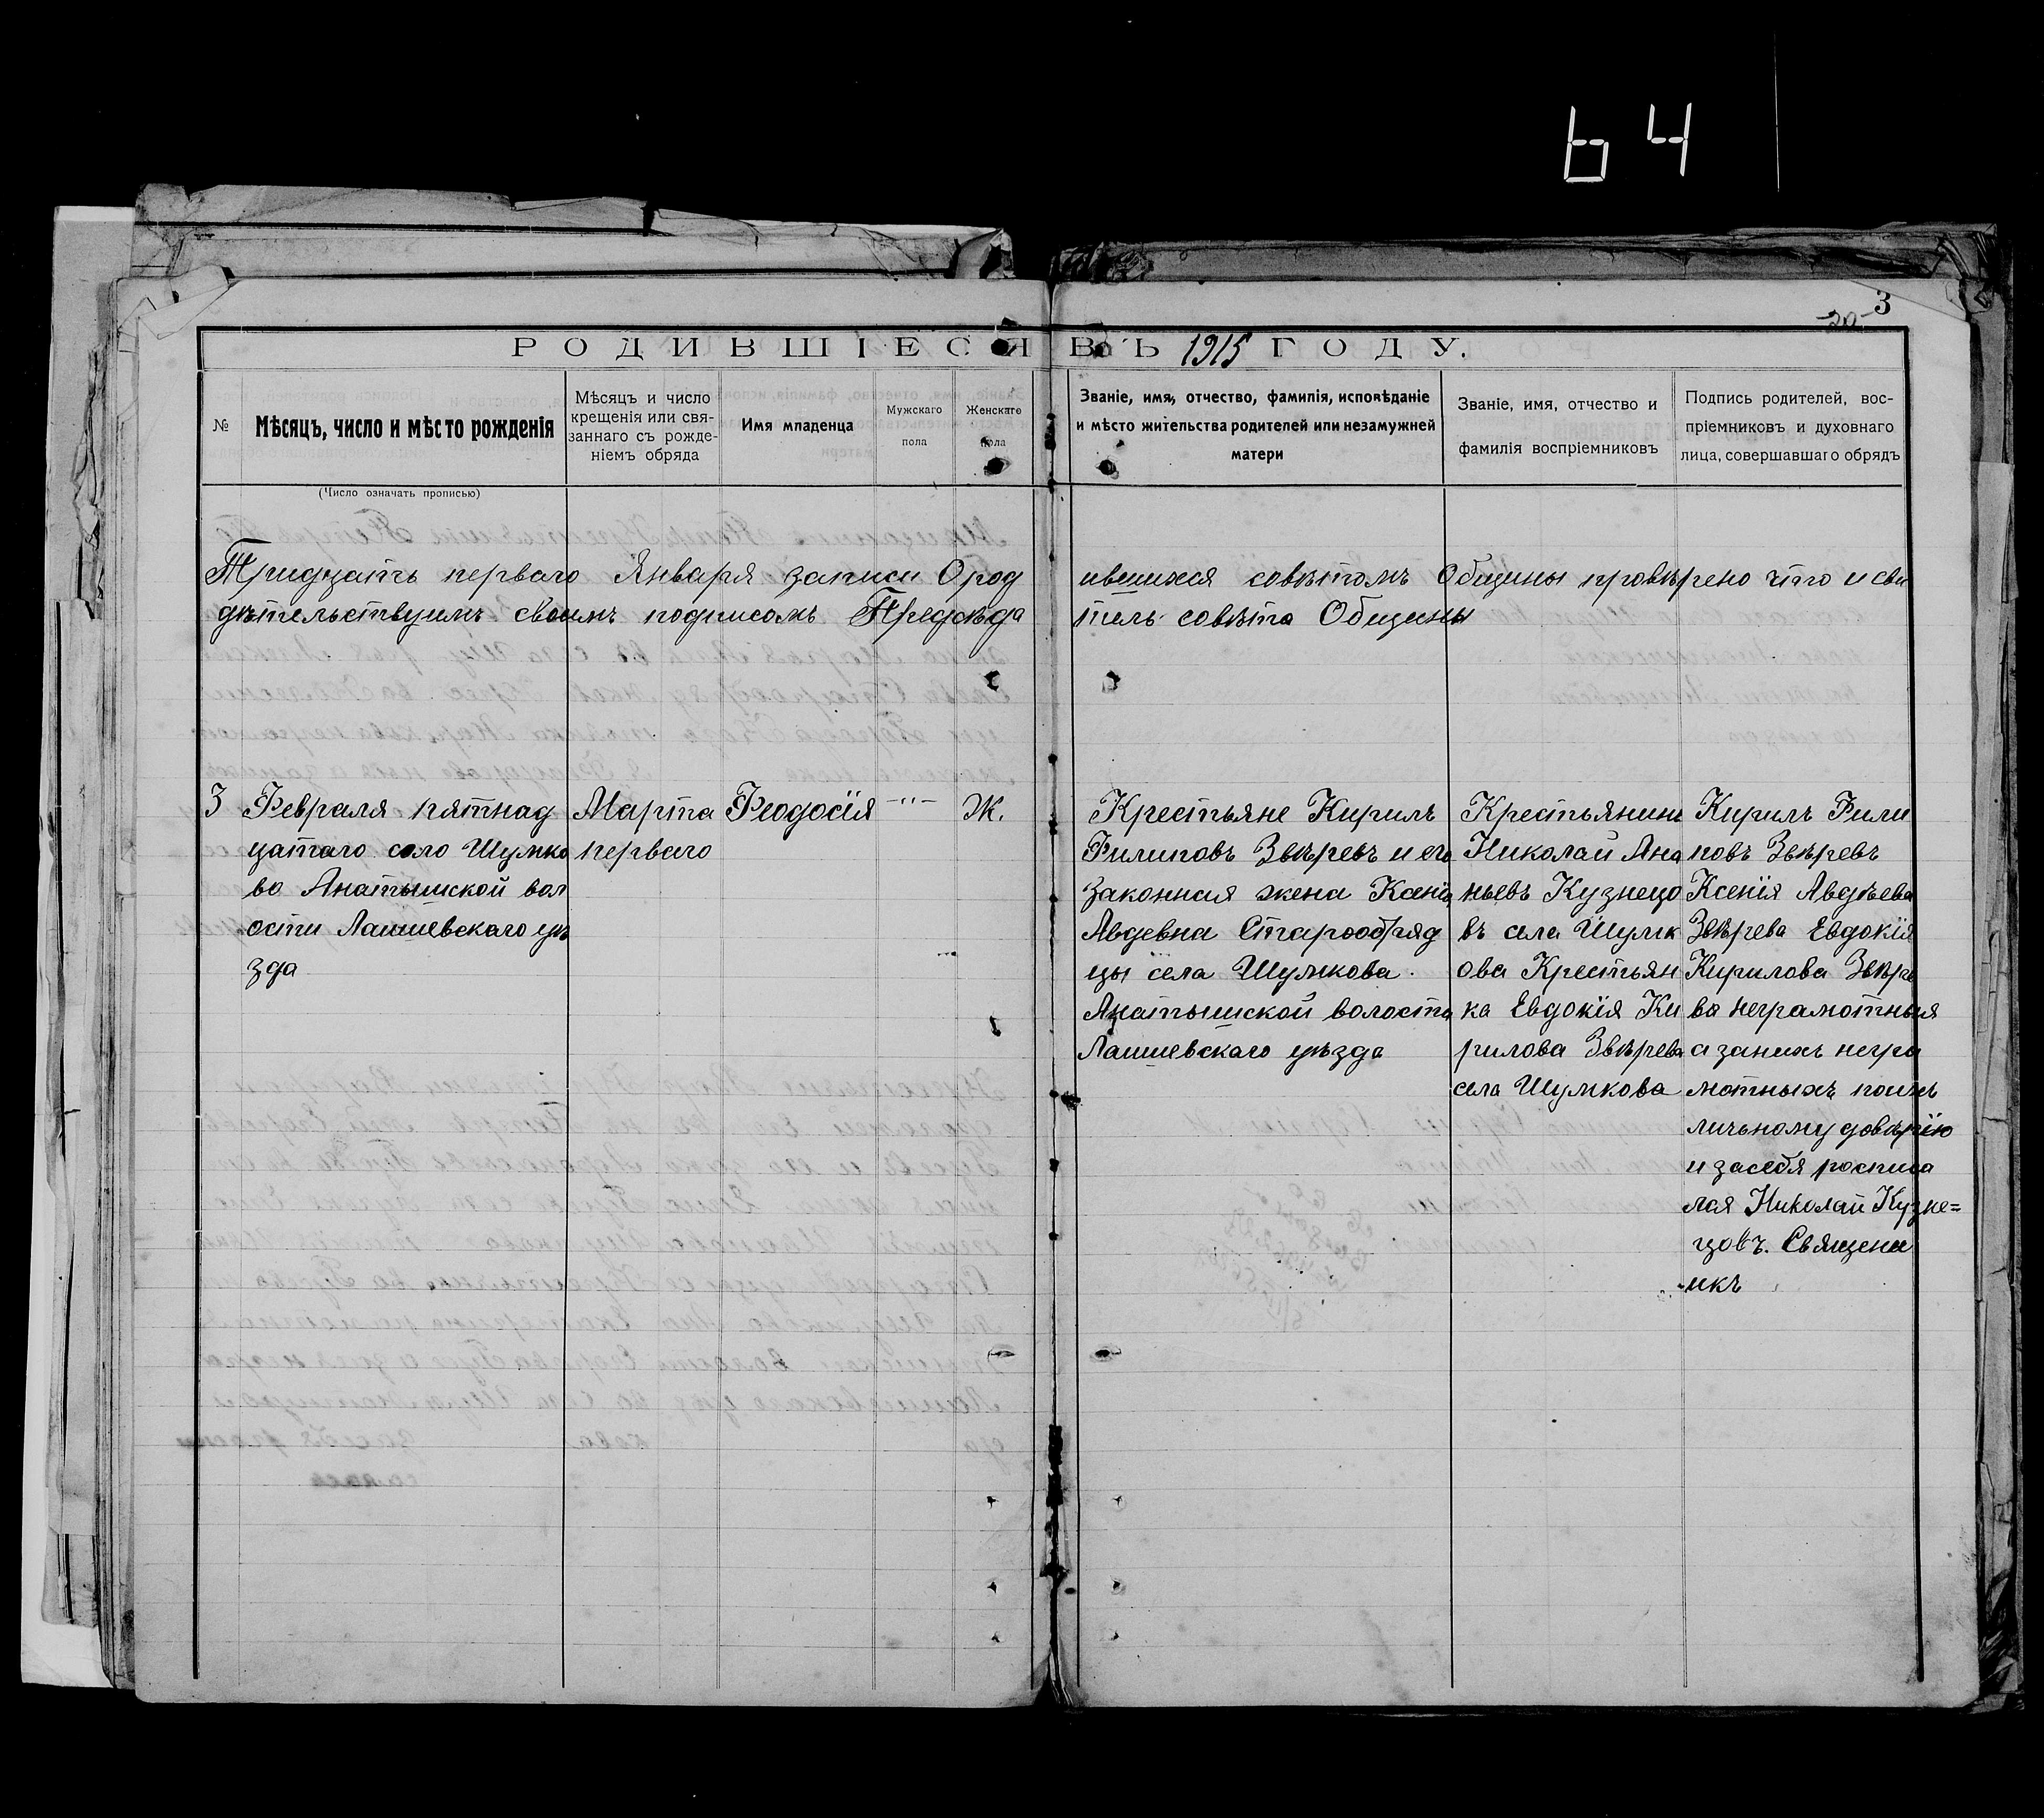 64
3
20
РОДИВШІЕСЯ ВЪ 1915 ГОДУ.
№
Мѣсяцъ, число и мѣсто рожденія
(Число означать прописью)
Мѣсяцъ и число
крещенія или свя-
заннаго съ рожде-
ніемъ обряда
Имя младенца
Мужскаго
пола
Женскаго
пола
Званіе, имя, отчество, фамилія, исповѣданіе
и мѣсто жительства родителей или незамужней
матери
Званіе, имя, отчество и
фамилія воспріемниковъ
Подпись родителей, вос-
пріемниковъ и духовнаго
лица, совершавшаго обрядъ
Тридцать перваго Января записи О род ившихся совѣтомъ Общины провѣрено что и сви
дѣтельствуимъ своимъ подписомъ Предсѣда тель совѣта Общины
3
Февраля пятнад
цатаго село Шумко
во Анатышской вол
ости Лаишевскаго уѣ
зда
Марта
перваго
Феодосія
-"-
Ж.
Крестьяне Кирилъ
Филиповъ Звѣревъ и его
Законная жена Ксенія
Авдевна Старообряд
цы села Шумкова.
Анатышской волости
Лаишевскаго уѣзда
Крестьянинъ
Николай Ана
ньевъ Кузнецо
въ села Шумк
ова Крестьян
ка Евдокія Ки
рилова Звѣрева
села Шумкова
Кирилъ Фили
повъ Звѣревъ
Ксенія Авдѣева
Звѣрева Евдокія
Кирилова Звѣре
ва неграмотныя
а занихъ негра
мотныхъ поихъ
личьному довѣрію
и засебя росписа
лся Николай Кузне=
цовъ. Священн
икъ